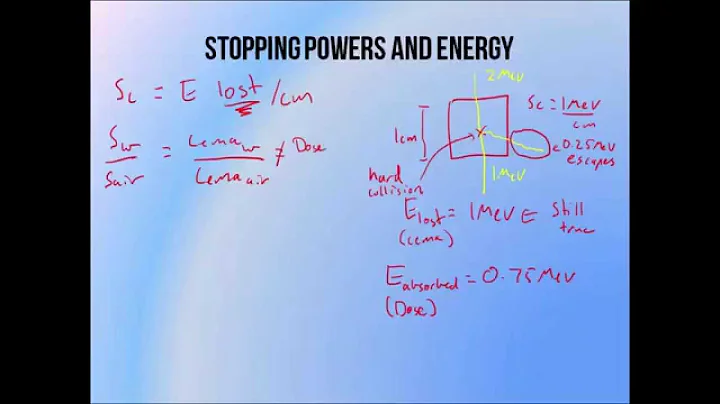 STOPPING POWERS AND ENERGY
Sc = E lost/cm
Sw/Sair = Cemaw/Cemaair ≠ Dose
2MeV
1cm
Sc = 1MeV/cm
0.25MeV
escapes
1MeV
hard
collision
Elost = 1MeV ∈ Still
true
(Cema)
Eabsorbed = 0.75MeV
(Dose)